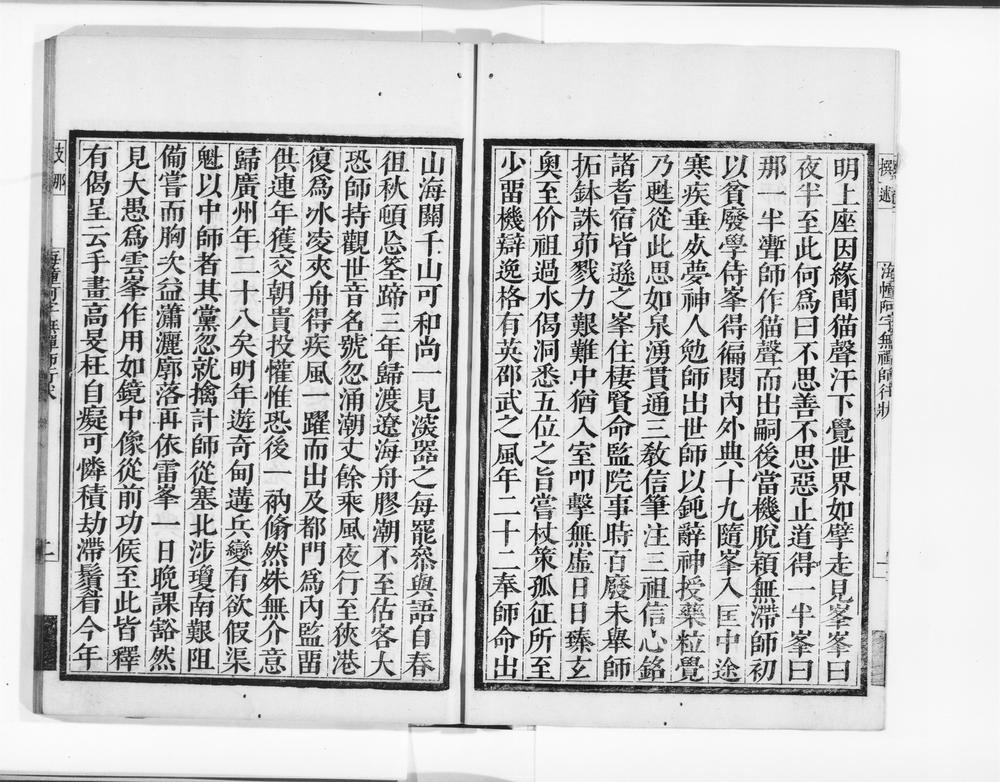 明上座因緣聞猫聲汗下覺世界如擘走見峯峯曰
夜半至此何爲曰不思善不思惡止道得一半峯曰
那一半聻師作猫聲而出嗣後當機脫穎無滯師初
以貧廢學侍峯得徧閱內外典十九隨峯入匡中途
寒疾垂㱙夢神人勉師出世師以鈍辭神授藥粒覺
乃甦從此思如泉湧貫通三敎信筆注三祖信心銘
諸耆宿皆遜之峯住棲賢命監院事時百廢未舉師
拓鉢誅茆戮力艱難中猶入室叩擊無虛日日臻玄
奧至价祖過水偈洞悉五位之旨嘗杖策孤征所至
少畱機辯逸格有英邵武之風年二十二奉師命出
山海關千山可和尚一見㴸器之每罷叅與語自春
徂秋頓忘筌蹄三年歸渡遼海舟膠潮不至估客大
恐師持觀世音名號忽涌潮丈餘乘風夜行至狹港
復爲冰凌夾舟得疾風一躍而出及都門爲內監畱
供連年獲交朝貴投懽惟恐後一衲翛然殊無介意
歸廣州年二十八矣明年遊奇甸遘兵變有欲假渠
魁以中師者其黨忽就擒計師從塞北涉瓊南艱阻
備嘗而胸次益瀟灑廓落再依雷峯一日晚課豁然
見大愚爲雲峯作用如鏡中像從前功候至此皆釋
有偈呈云手畫高旻枉自癡可憐積劫滯鬚眉今年
撰述
海幢阿字無禪師行狀
支那